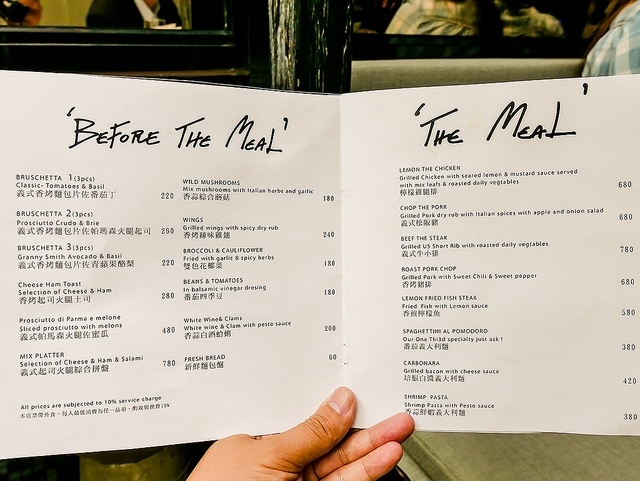 'BEFORE THE MEAL'
BRUSCHETTA 1 (3pcs)
Classic- Tomatoes & Basil
義式香烤麵包片佐番茄丁 220
BRUSCHETTA 2 (3pcs)
Prosciutto Crudo & Brie
義式香烤麵包片佐帕瑪森火腿起司 260
BRUSCHETTA 3 (3pcs)
Granny Smith Avocado & Basil
義式香烤麵包片佐青蘋果酪梨 220
Cheese Ham Toast
Selection of Cheese & Ham
香烤起司火腿土司 280
Prosciutto di Parma e melone
Sliced prosciutto with melons
義式帕馬森火腿佐蜜瓜 480
MIX PLATTER
Selection of Cheese & Ham & Salami
義式起司火腿綜合拼盤 780
All prices are subjected to 10% service charge
WILD MUSHROOMS
Mix mushrooms with Italian herbs and garlic
香蒜綜合蘑菇 180
WINGS
Grilled wings with spicy dry rub
香烤辣味雞翅 240
BROCCOLI & CAULIFLOWER
Fried with garlic & spicy herbs
雙色花椰菜 180
BEANS & TOMATOES
In balsamic vinegar dresing
番茄四季豆 180
White Wine& Clams
White wine & Clam with pesto sauce
香蒜白酒蛤蜊 200
FRESH BREAD
新鮮麵包盤 60
'THE MEAL'
LEMON THE CHICKEN
Grilled Chicken with seared lemon & mustard sauce served
with mix leafs & roasted daily vegtables
檸檬雞腿排 680
CHOP THE PORK
Grilled Pork dry rub with Italian spices with apple and onion salad
義式松阪豬 680
BEEF THE STEAK
Grilled US Short Rib with roasted daily vegtables
義式牛小排 780
ROAST PORK CHOP
Grilled Pork with Sweet Chili & Sweet pepper
香烤豬排 680
LEMON FRIED FISH STEAK
Fried Fish with Lemon sauce
香煎檸檬魚 580
SPAGHETTINI AL POMODORO
Our One Third specialty just ask !
番茄義大利麵 380
CARBONARA
Grilled bacon with cheese sauce
培根白醬義大利麵 420
SHRIMP PASTA
Shrimp Pasta with Pesto sauce
香蒜鮮蝦義大利麵 380